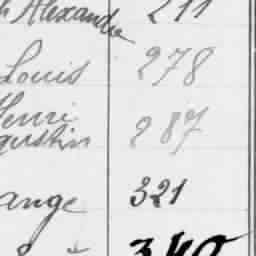 Alexandre 211
Louis 278
Henri
gustin 287
ange 321
340